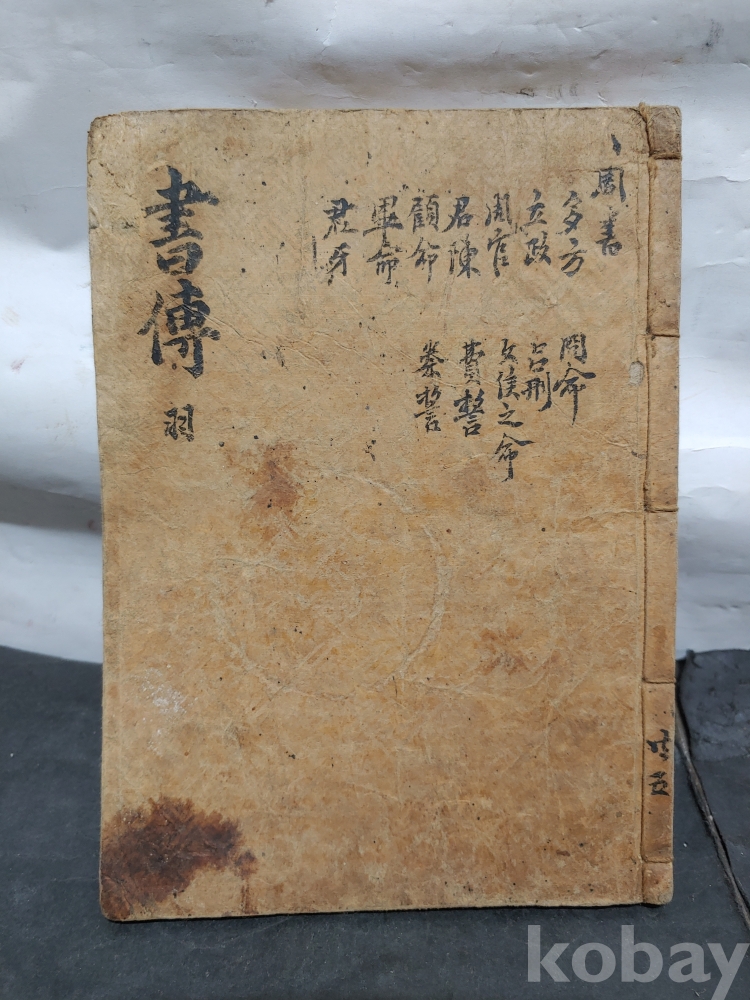 周書
多方
立政
周官
君陳
顧命
畢命
君牙
冏命
呂刑
文侯之命
費誓
秦誓
書傳 羽
共五
kobay